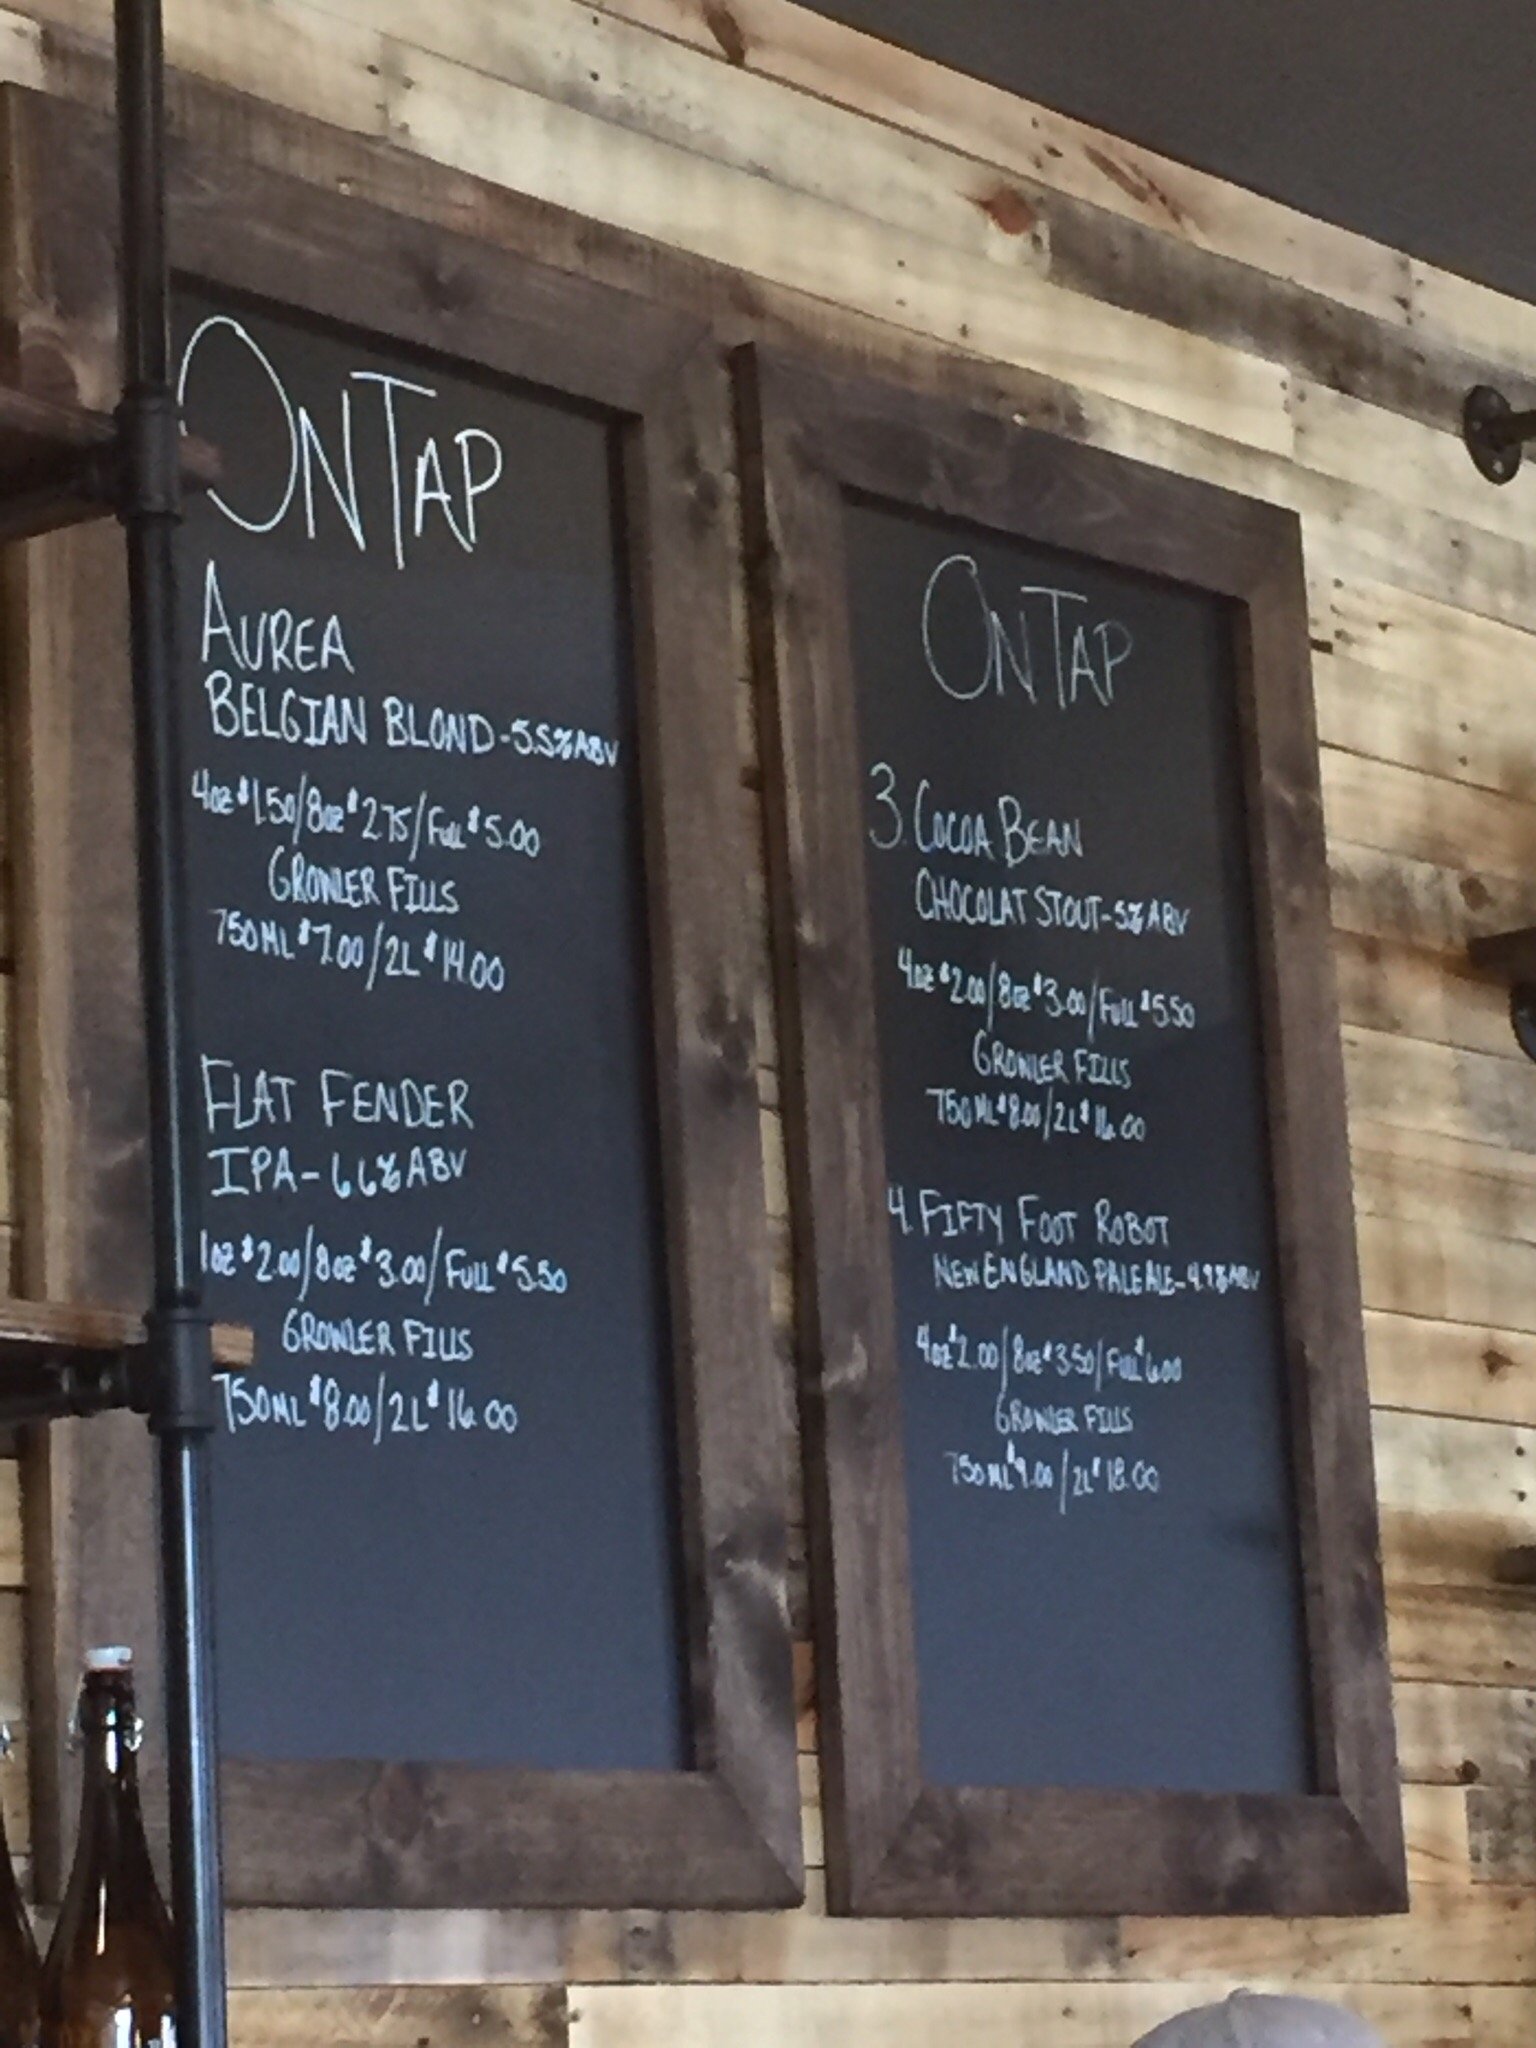 ONTAP
AUREA
BELGIAN BLOND-5.5%ABV
4oz $1.50/8oz $2.75/FULL $5.00
GROWLER FILLS
750ML $7.00/2L $14.00
FLAT FENDER
IPA-6.6%ABV
oz $2.00/8oz $3.00/FULL $5.50
GROWLER FILLS
750ML $8.00/2L $16.00
ONTAP
3. COCOA BEAN
CHOCOLAT STOUT-5%ABV
4oz $2.00/8oz $3.00/FULL $5.50
GROWLER FILLS
750ML $8.00/2L $16.00
4. FIFTY FOOT ROBOT
NEW ENGLAND PALE ALE-4.9%ABV
4oz $2.00/8oz $3.50/FULL $6.00
GROWLER FILLS
750ML $9.00/2L $18.00